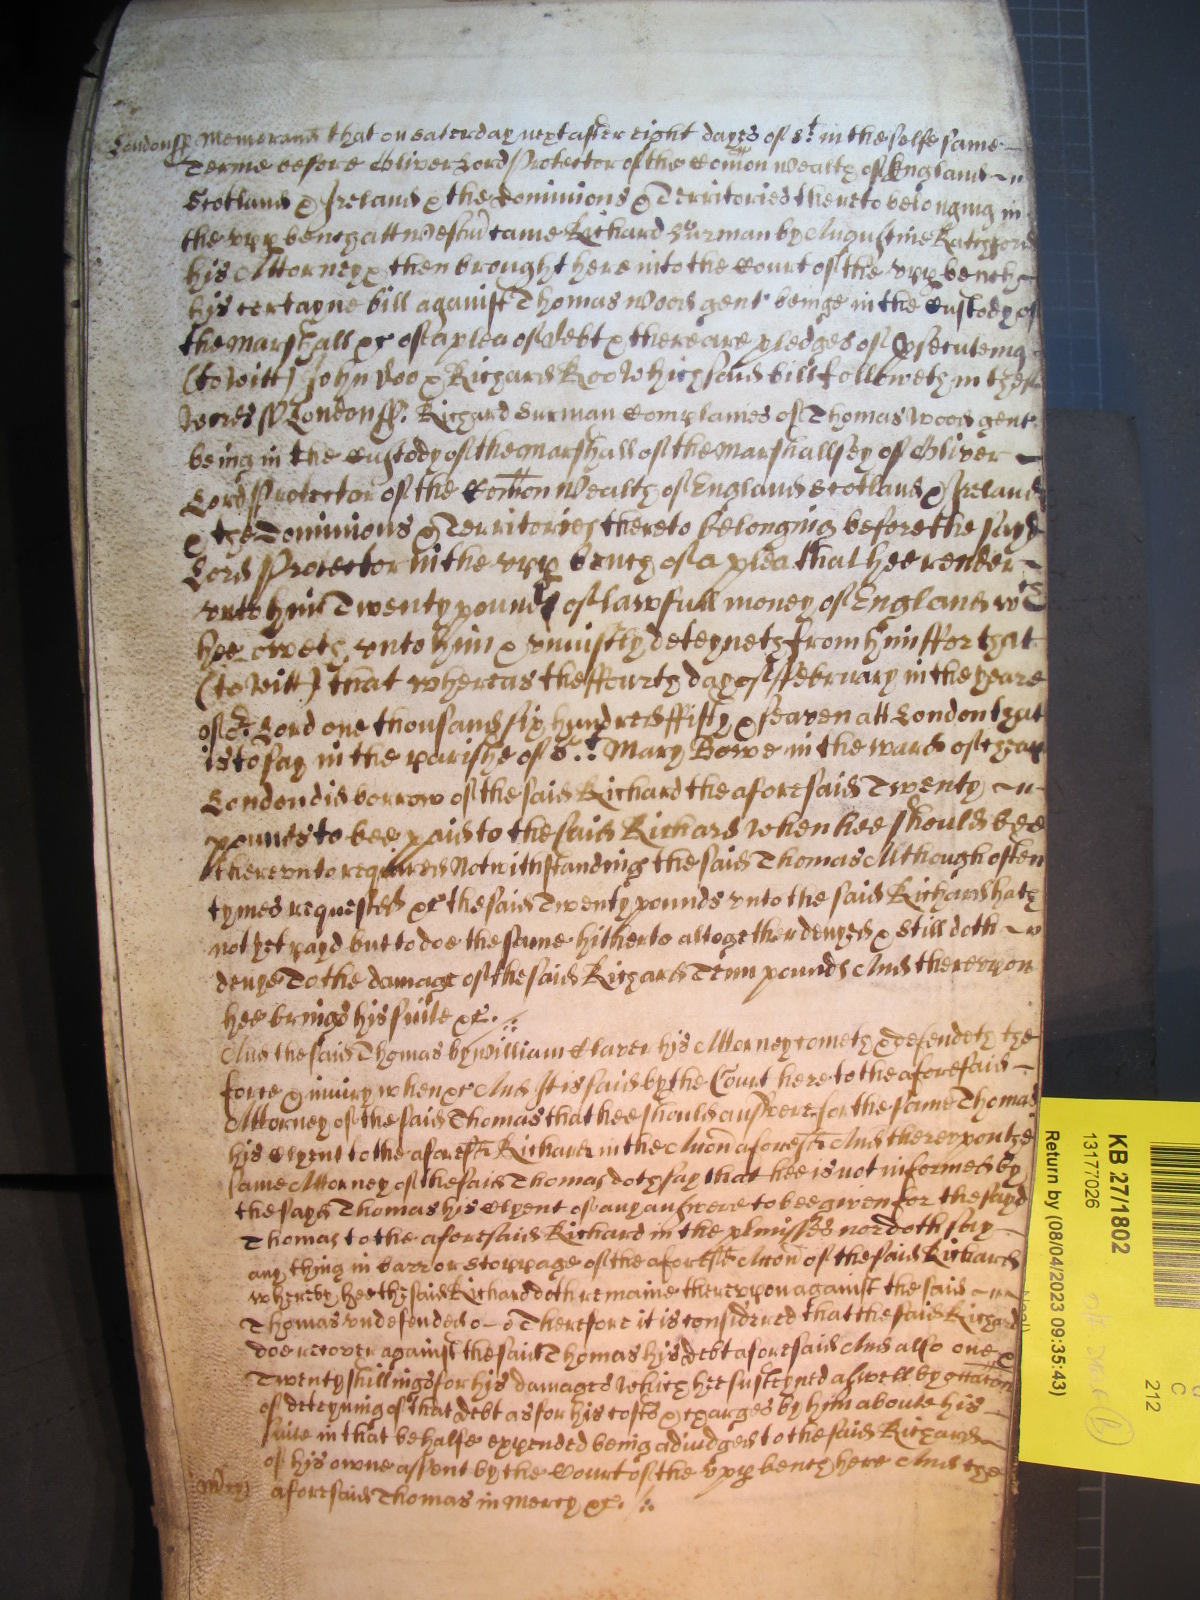 London ss Memorand that on Saterday next after eight dayes of St in the selfe same
Terme before Oliver Lord Protector of the Com̄on Wealth of England
Scotland & Ireland & the Dominions & Territories thereto belonging in
the upp bench att Westm̄ came Richard Surman by Augustine
his Attorney & then brought here into the Court of the upp bench
his certayne bill against Thomas Wood gent beinge in the Custody of
the Marshall &c of a plea of debt & there are pledges of p̱secuteing
(to witt) John Doo & Richard Roo Which said bill followeth in these
Wordes ss London ss. Richard Surman Complaines of Thomas Wood gent
being in the Custody of the Marshall of the Marshallsey of Oliver
Lord Protector of the Com̄on Wealth of England Scotland & Ireland
& the Dominions & Territories thereto belonging before the sayd
Lord Protector in the upp bench of a plea that hee render
unto him Twenty pounds of lawfull money of England wch
hee oweth unto him & uniustly deteyneth from him ffor that
(to witt) that whereas the ffourth day of ffebruary in the yeare
of or Lord one thousand six hundred ffifty & seaven att London that
is to say in the parishe of St Mary Bowe in the ward of Cheap
London did borrow of the said Richard the aforesaid Twenty
pounds to bee paid to the said Richard when hee should bee
thereunto required Notwithstanding the said Thomas Although often
tymes requested &c the said Twenty pounds unto the said Richard hath
not yet payd but to doe the same hitherto altogether denyed & still doth
denye To the damage of the said Richard Tenn pounds And thereupon
hee brings his suite &c.
And the said Thomas by William Claver his Attorney cometh & defendeth the
force & iniury when &c And It is said by the Court here to the aforesaid
Attorney of the said Thomas that hee should answere for the same Thomas
his Clyent to the aforesd Richard in the Acc̄on aforesd And thereupon the
same Attorney of the said Thomas doth say that hee is not informed by
the sayd Thomas his Clyent of any answere to bee given for the sayd
Thomas to the aforesaid Richard in the p̱misses nor doth say
any thing in barr or stoppage of the aforesd Acc̄on of the said Richard
whereby hee the said Richard doth remaine thereupon against the said
Thomas undefended Therefore it is considered that the said Richard
doe recover against the said Thomas his debt aforesaid And also one &
Twenty shillings for his damages Which hee susteyned aswell by occac̄on
of deteyning of that debt as for his costs & charges by him about his
suite in that behalfe expended being adiudged to the said Richard
of his owne assent by the Court of the upp bench here And the
Mercy aforesaid Thomas in mercy &c.
KB 27/1802
13177026
Return by (08/04/2023 09:35:43)
C
212